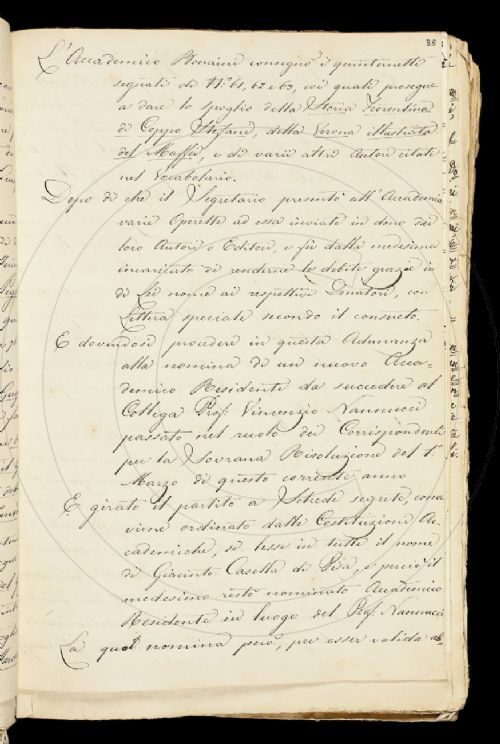 86
L'Accademico Bencini consegnò i quinternetti
segnati di N.° 61, 62 e 63, coi quali prosegue
a dare lo spoglio della Storia Fiorentina
di Coppo Stefani, della Verona illustrata
del Maffei, e di varii altri Autori citati
nel Vocabolario.
Dopo di che il Segretario presentò all'Accademia
varie Operette ad essa inviate in dono dai
loro Autori o Editori, e fù dalla medesima
incaricato di renderne le debite grazie in
di Lei nome ai respettivi Donatori, con
Lettera speciale secondo il consueto.
E dovendosi procedere in questa Adunanza
alla nomina di un nuovo Acca-
demico Residente da succedere al
Collega Prof. Vincenzio Nannucci
passato nel ruolo dei Corrispondenti
per la Sovrana Risoluzione del 1.°
Marzo di questo corrente anno
E girato il partito a Schede segrete, come
viene ordinato dalle Costituzioni Ac-
cademiche, si lesse in tutte il nome
di Giacinto Casella di Pisa, e perciò il
medesimo restò nominato Accademico
Residente in luogo del Prof. Nannucci
La qual nomina però, per esser valida ab-